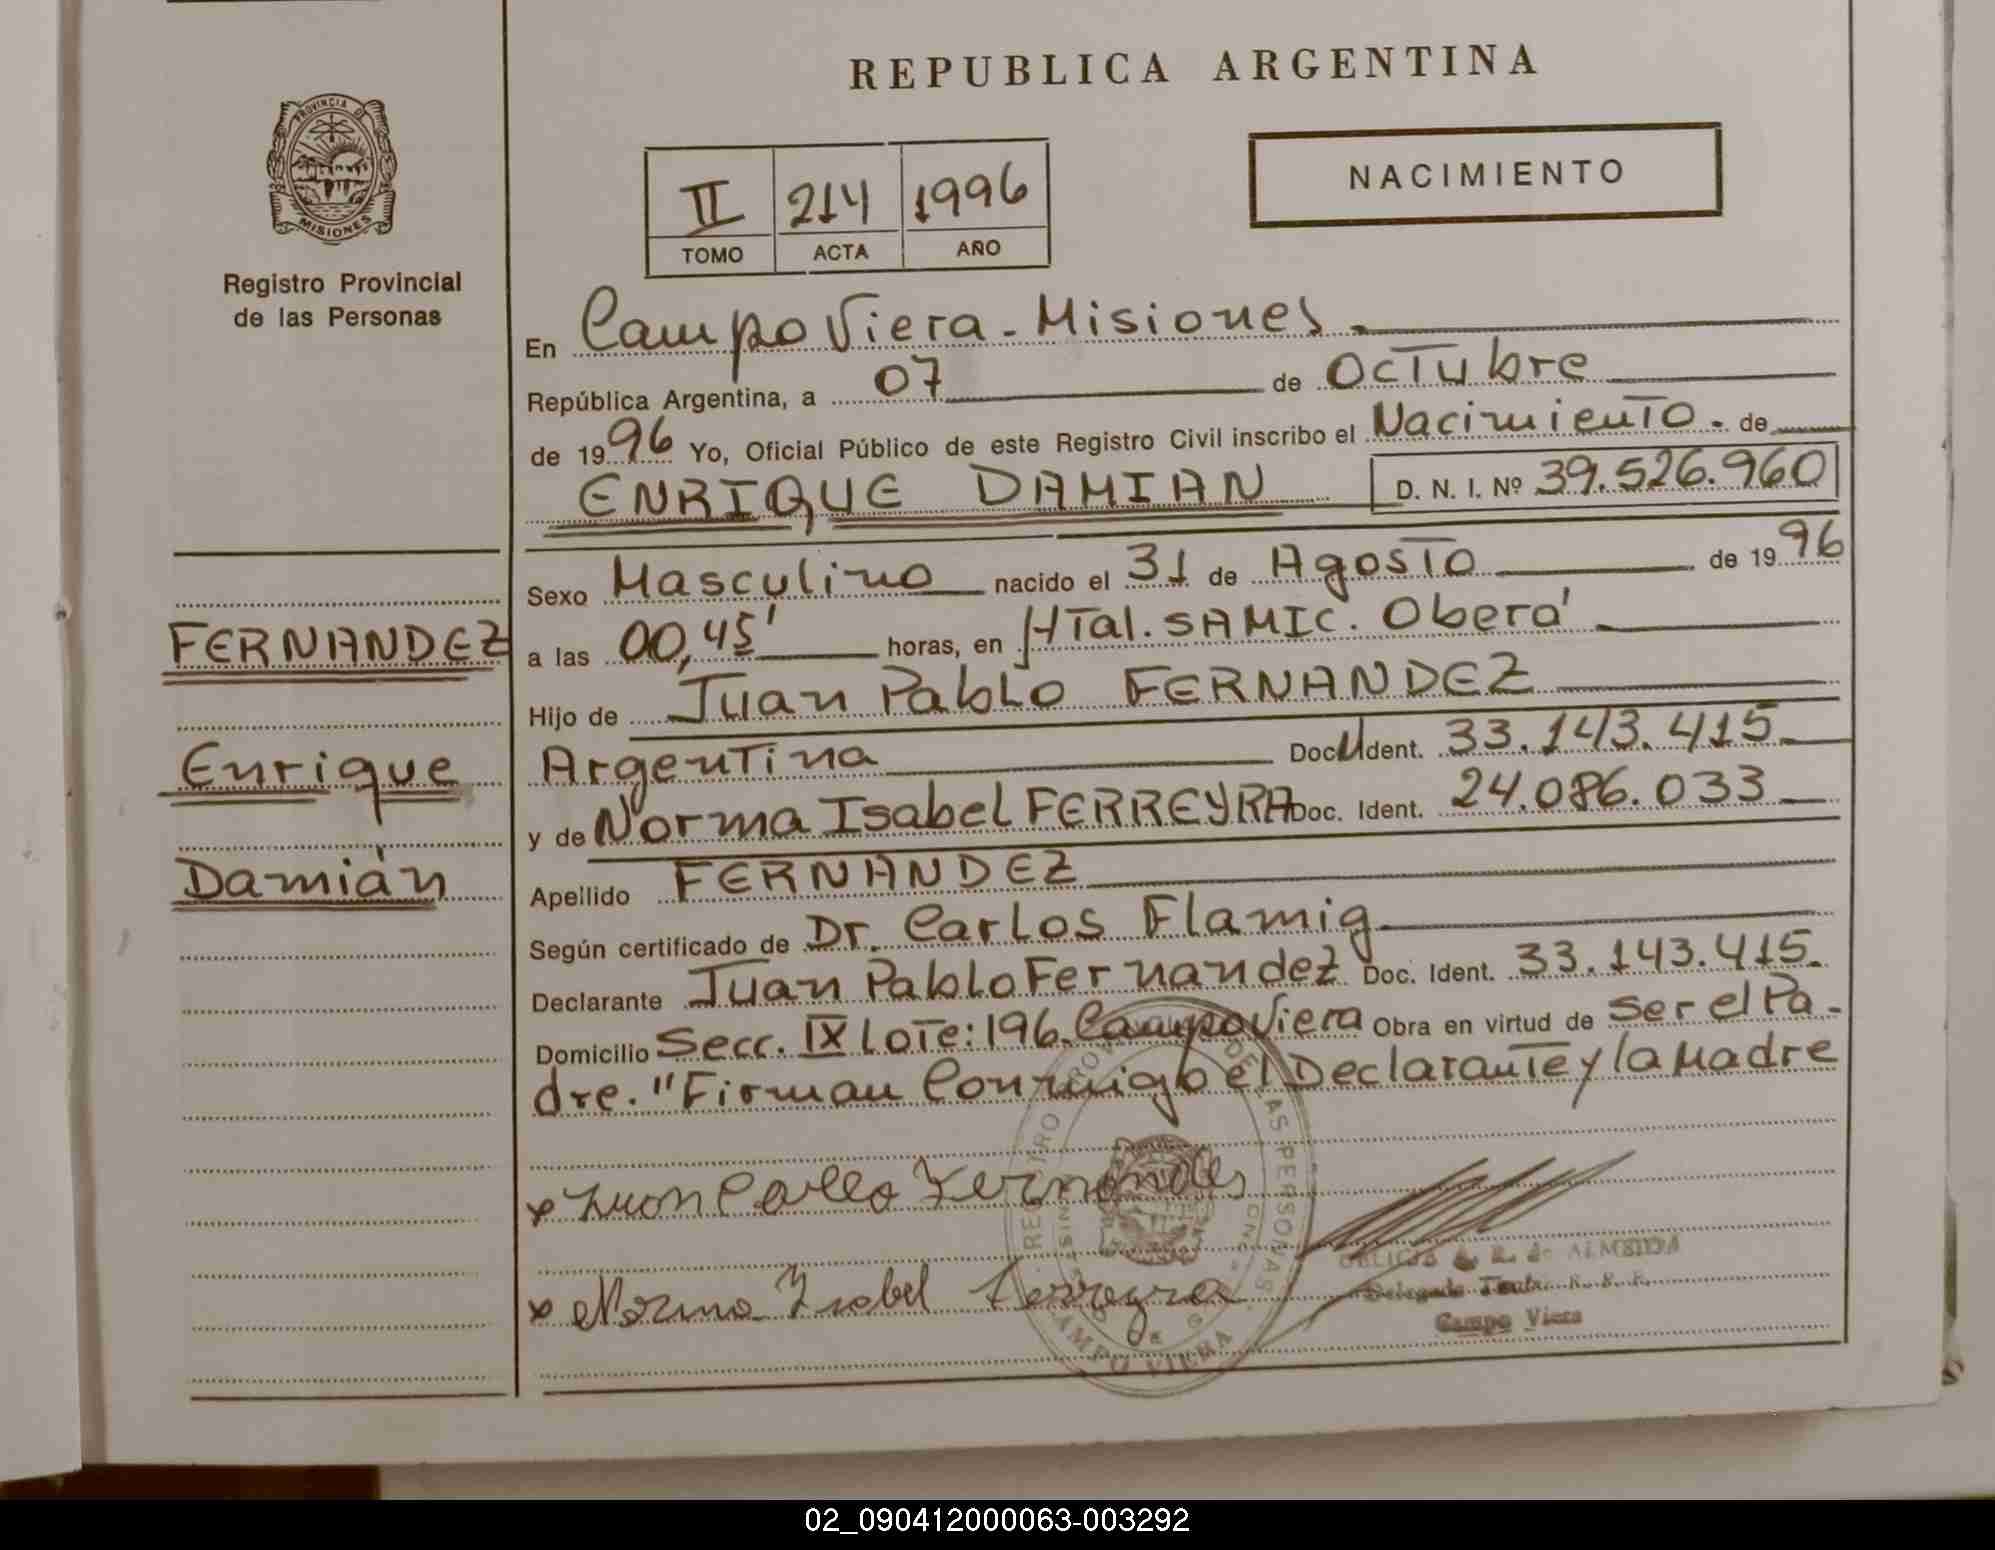 REPUBLICA ARGENTINA
PROVINCIA DE
MISIONES
Registro Provincial
de las Personas
NACIMIENTO
II 214 1996
TOMO ACTA AÑO
En Campo Viera - Misiones.
República Argentina, a 07 de Octubre
de 1996 Yo, Oficial Público de este Registro Civil inscribo el Nacimiento. de
ENRIQUE DAMIAN D. N. I. Nº 39.526.960
Sexo Masculino nacido el 31 de Agosto de 1996
FERNANDEZ
a las 00,45' horas, en HTal. SAMIC. Oberá
Hijo de Juan Pablo FERNANDEZ
Enrique
Argentina Doc U Ident. 33.143.415
y de Norma Isabel FERREYRA Doc. Ident. 24.086.033
Damián
Apellido FERNANDEZ
Según certificado de Dr. Carlos Flamig
Declarante Juan Pablo Fernandez Doc. Ident. 33.143.415.
Domicilio Secc. IX Lote: 196. Campo Viera Obra en virtud de ser el Pa-
dre. "Firman Conmigo el Declarante y la Madre
x Juan Fernandes
x Norma Isabel Ferreyra
REGISTRO PROVINCIAL DE LAS PERSONAS
CAMPO VIERA
de ALMEIDA
Delegado
Campo Viera
02_090412000063-003292